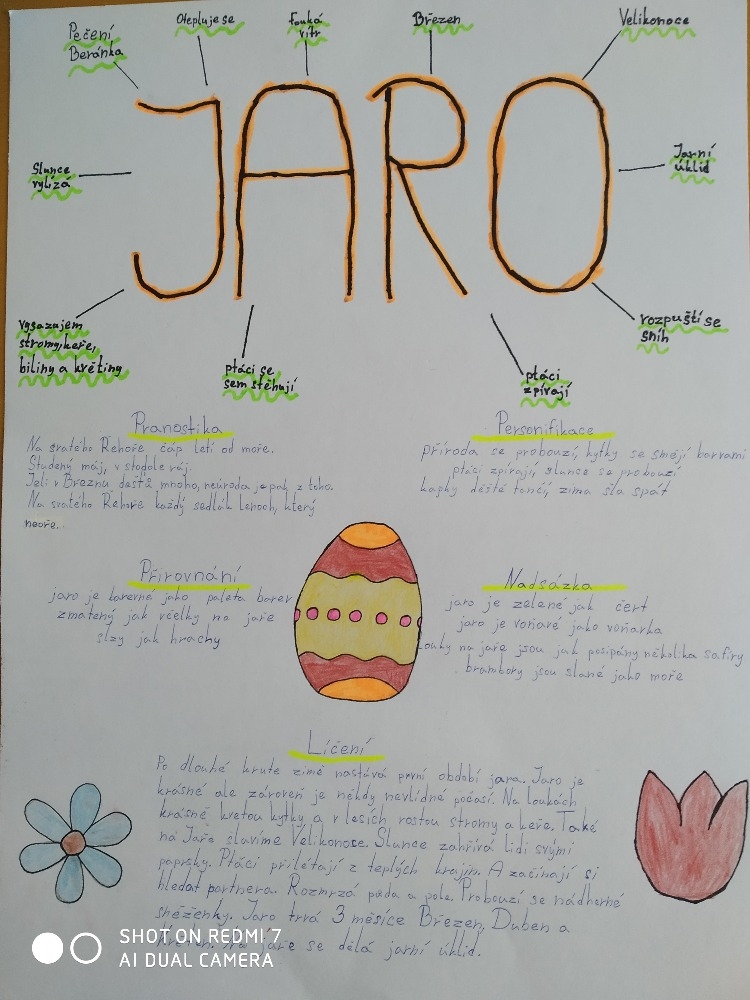 Pečení
Beránka
Otepluje se
Fouká
vítr
Březen
Velikonoce
JARO
Slunce
vylízá
Jarní
úklid
vysazujem
stromy, keře,
biliny a květiny
ptáci se
sem stěhují
ptáci
zpívají
rozpuští se
sníh
Pranostika
Na svatého Řehoře čáp letí od moře.
Studený máj, v stodole ráj.
Jeli v Breznu dešťů mnoho, neúroda je pak z toho.
Na svatého Řehoře každý sedlák lenoch, který
neoře.
Personifikace
příroda se probouzí, kytky se smějí barvami
ptáci zpívají slunce se probouzí
kapky deště tančí, zima šla spát
Přirovnání
jaro je barevné jako paleta barev
zmatený jak včelky na jaře
slzy jak hrachy
Nadsázka
jaro je zelené jak čert
jaro je voňavé jako voňavka
Louky na jaře jsou jak posipány několika safíry
brambory jsou slané jako moře
Líčení
Po dlouhé krute zimě nastává první období jara. Jaro je
krásné ale zároveň je někdy nevlídné počasí. Na loukách
krásně kvetou kytky a v lesích rostou stromy a keře. Také
na Jaře slavíme Velikonoce. Slunce zahřívá lidi svými
paprsky. Ptáci přilétají z teplých krajin. A začínají si
hledat partnera. Rozmrzá půda a pole. Probouzí se nádherné
sněženky. Jaro trvá 3 měsíce Březen, Duben a
Květen. Na jaře se dělá jarní úklid.
SHOT ON REDMI 7
AI DUAL CAMERA